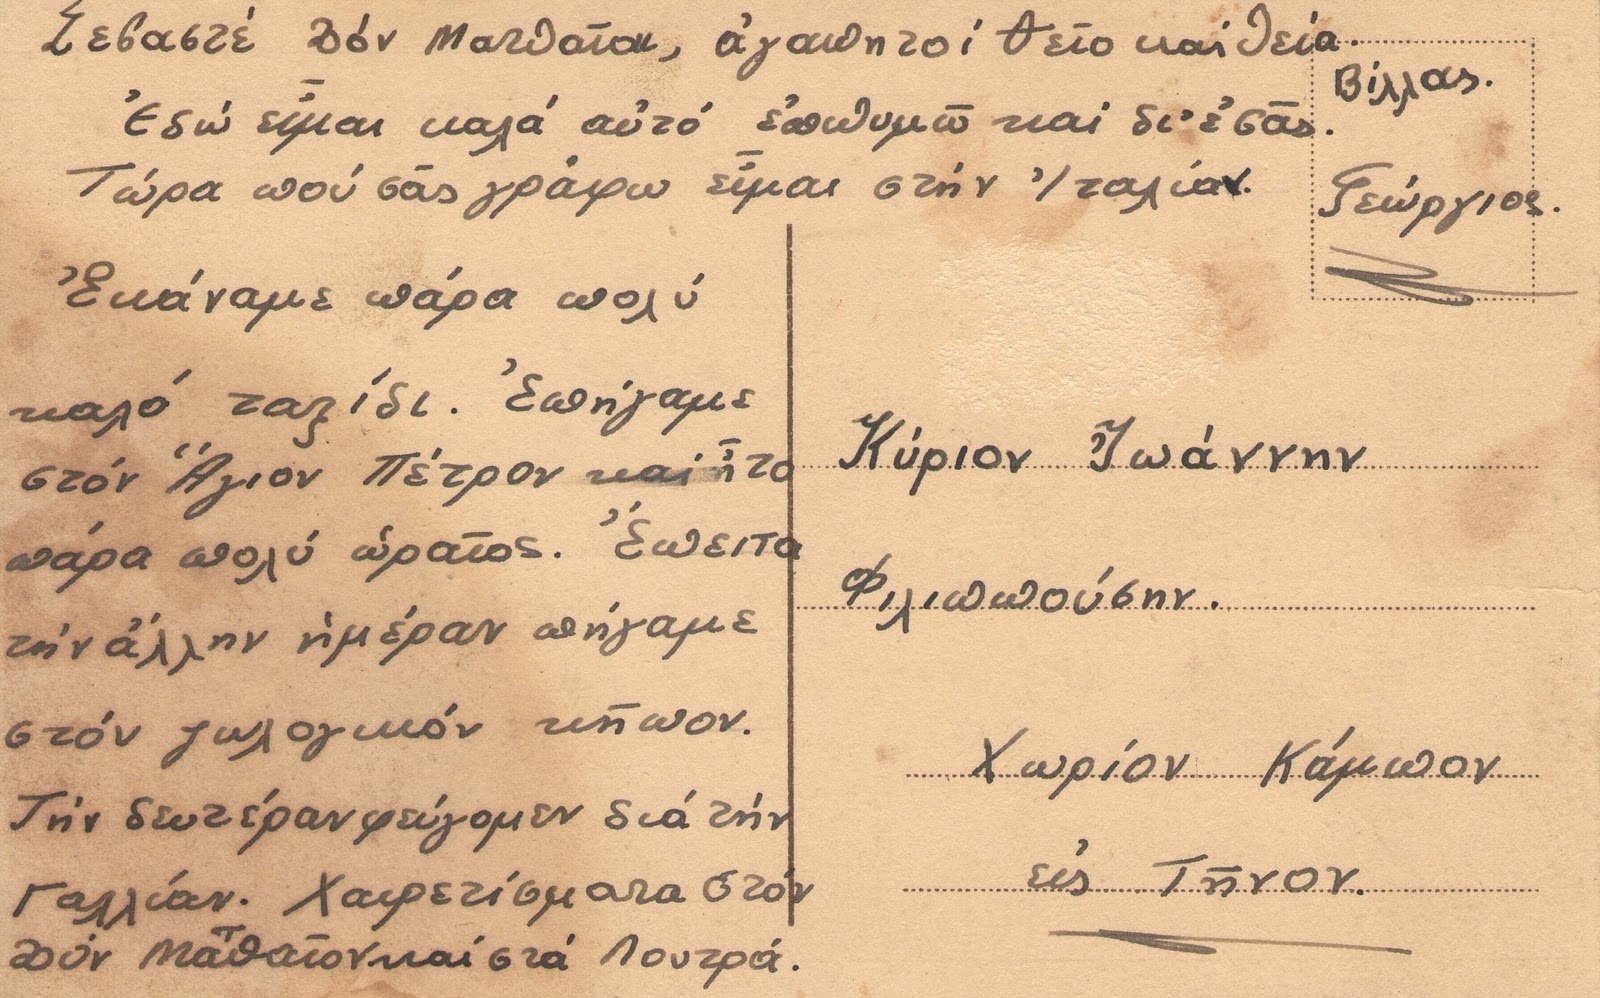 Σεβαστέ Δόν Ματθαῖον, ἀγαπητοί θεῖο καί θεία.
Ἐδῶ εἶμαι καλά αὐτό ἐπιθυμῶ καί δι' ἐσᾶς.
Τώρα πού σᾶς γράφω εἶμαι στήν Ἰταλίαν.
Ἐκάναμε πάρα πολύ
καλό ταξίδι. Ἐπήγαμε
στόν Ἅγιον Πέτρον καί ἦτο
πάρα πολύ ὡραῖος. Ἔπειτα
τήν ἄλλην ἡμέραν πήγαμε
στόν ζωλογικόν κῆπον.
Τήν δευτέραν φεύγομεν διά τήν
Γαλλίαν. Χαιρετίσματα στόν
Δόν Ματθαῖον καί στά Λουτρά.
Βίλλας.
Γεώργιος.
Κύριον Ἰωάννην
Φιλιππούσην.
Χωρίον Κάμπον
εἰς Τῆνον.